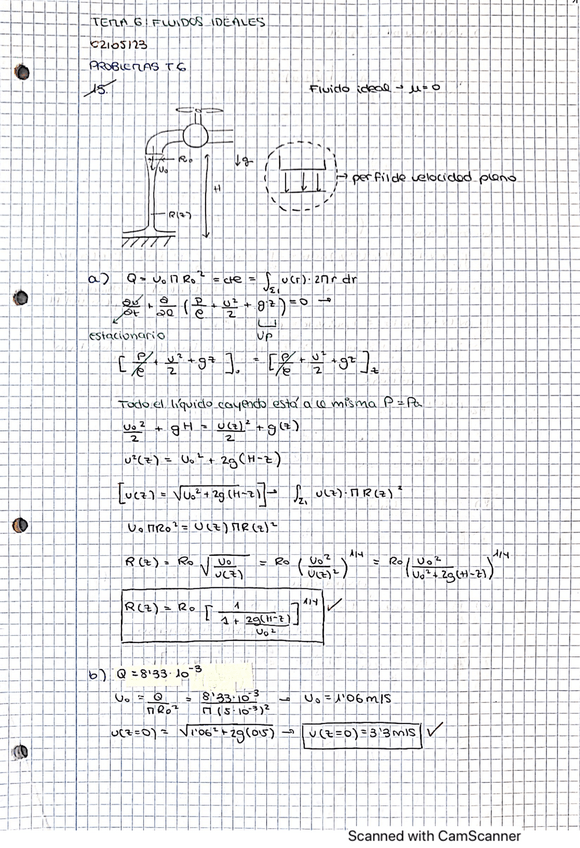 TEMA 6: FLUIDOS IDEALES
02105123
PROBLEMAS T6
15.
Fluido ideal → μ=0
R₀
U₀
↓g
H
R(z)
→ perfil de velocidad plano
a) Q = U₀ π R₀² = cte = ∫_Σ₁ U(r)·2πr dr
∂U/∂t + ∂/∂l (P/ρ + U²/2 + g·z) = 0 →
estacionario
UP
[P/ρ + U²/2 + gz]₀ = [P/ρ + U²/2 + gz]_z
Todo el líquido cayendo está a la misma P = Pa
U₀²/2 + gH = U(z)²/2 + g(z)
U²(z) = U₀² + 2g(H-z)
[U(z) = √(U₀² + 2g(H-z))] → ∫_Σ₁ U(z)·πR(z)²
U₀πR₀² = U(z)πR(z)²
R(z) = R₀ √(U₀/U(z)) = R₀ (U₀²/U(z)²)^1/4 = R₀ (U₀²/(U₀²+2g(H-z)))^1/4
R(z) = R₀ [1/(1 + 2g(H-z)/U₀²)]^1/4 ✓
b) Q = 8'33·10⁻³
U₀ = Q/(πR₀²) = 8'33·10⁻³/(π(5·10⁻³)²) → U₀ = 1'06 m/s
U(z=0) = √(1'06² + 2g(0'5)) → U(z=0) = 3'3 m/s ✓
Scanned with CamScanner